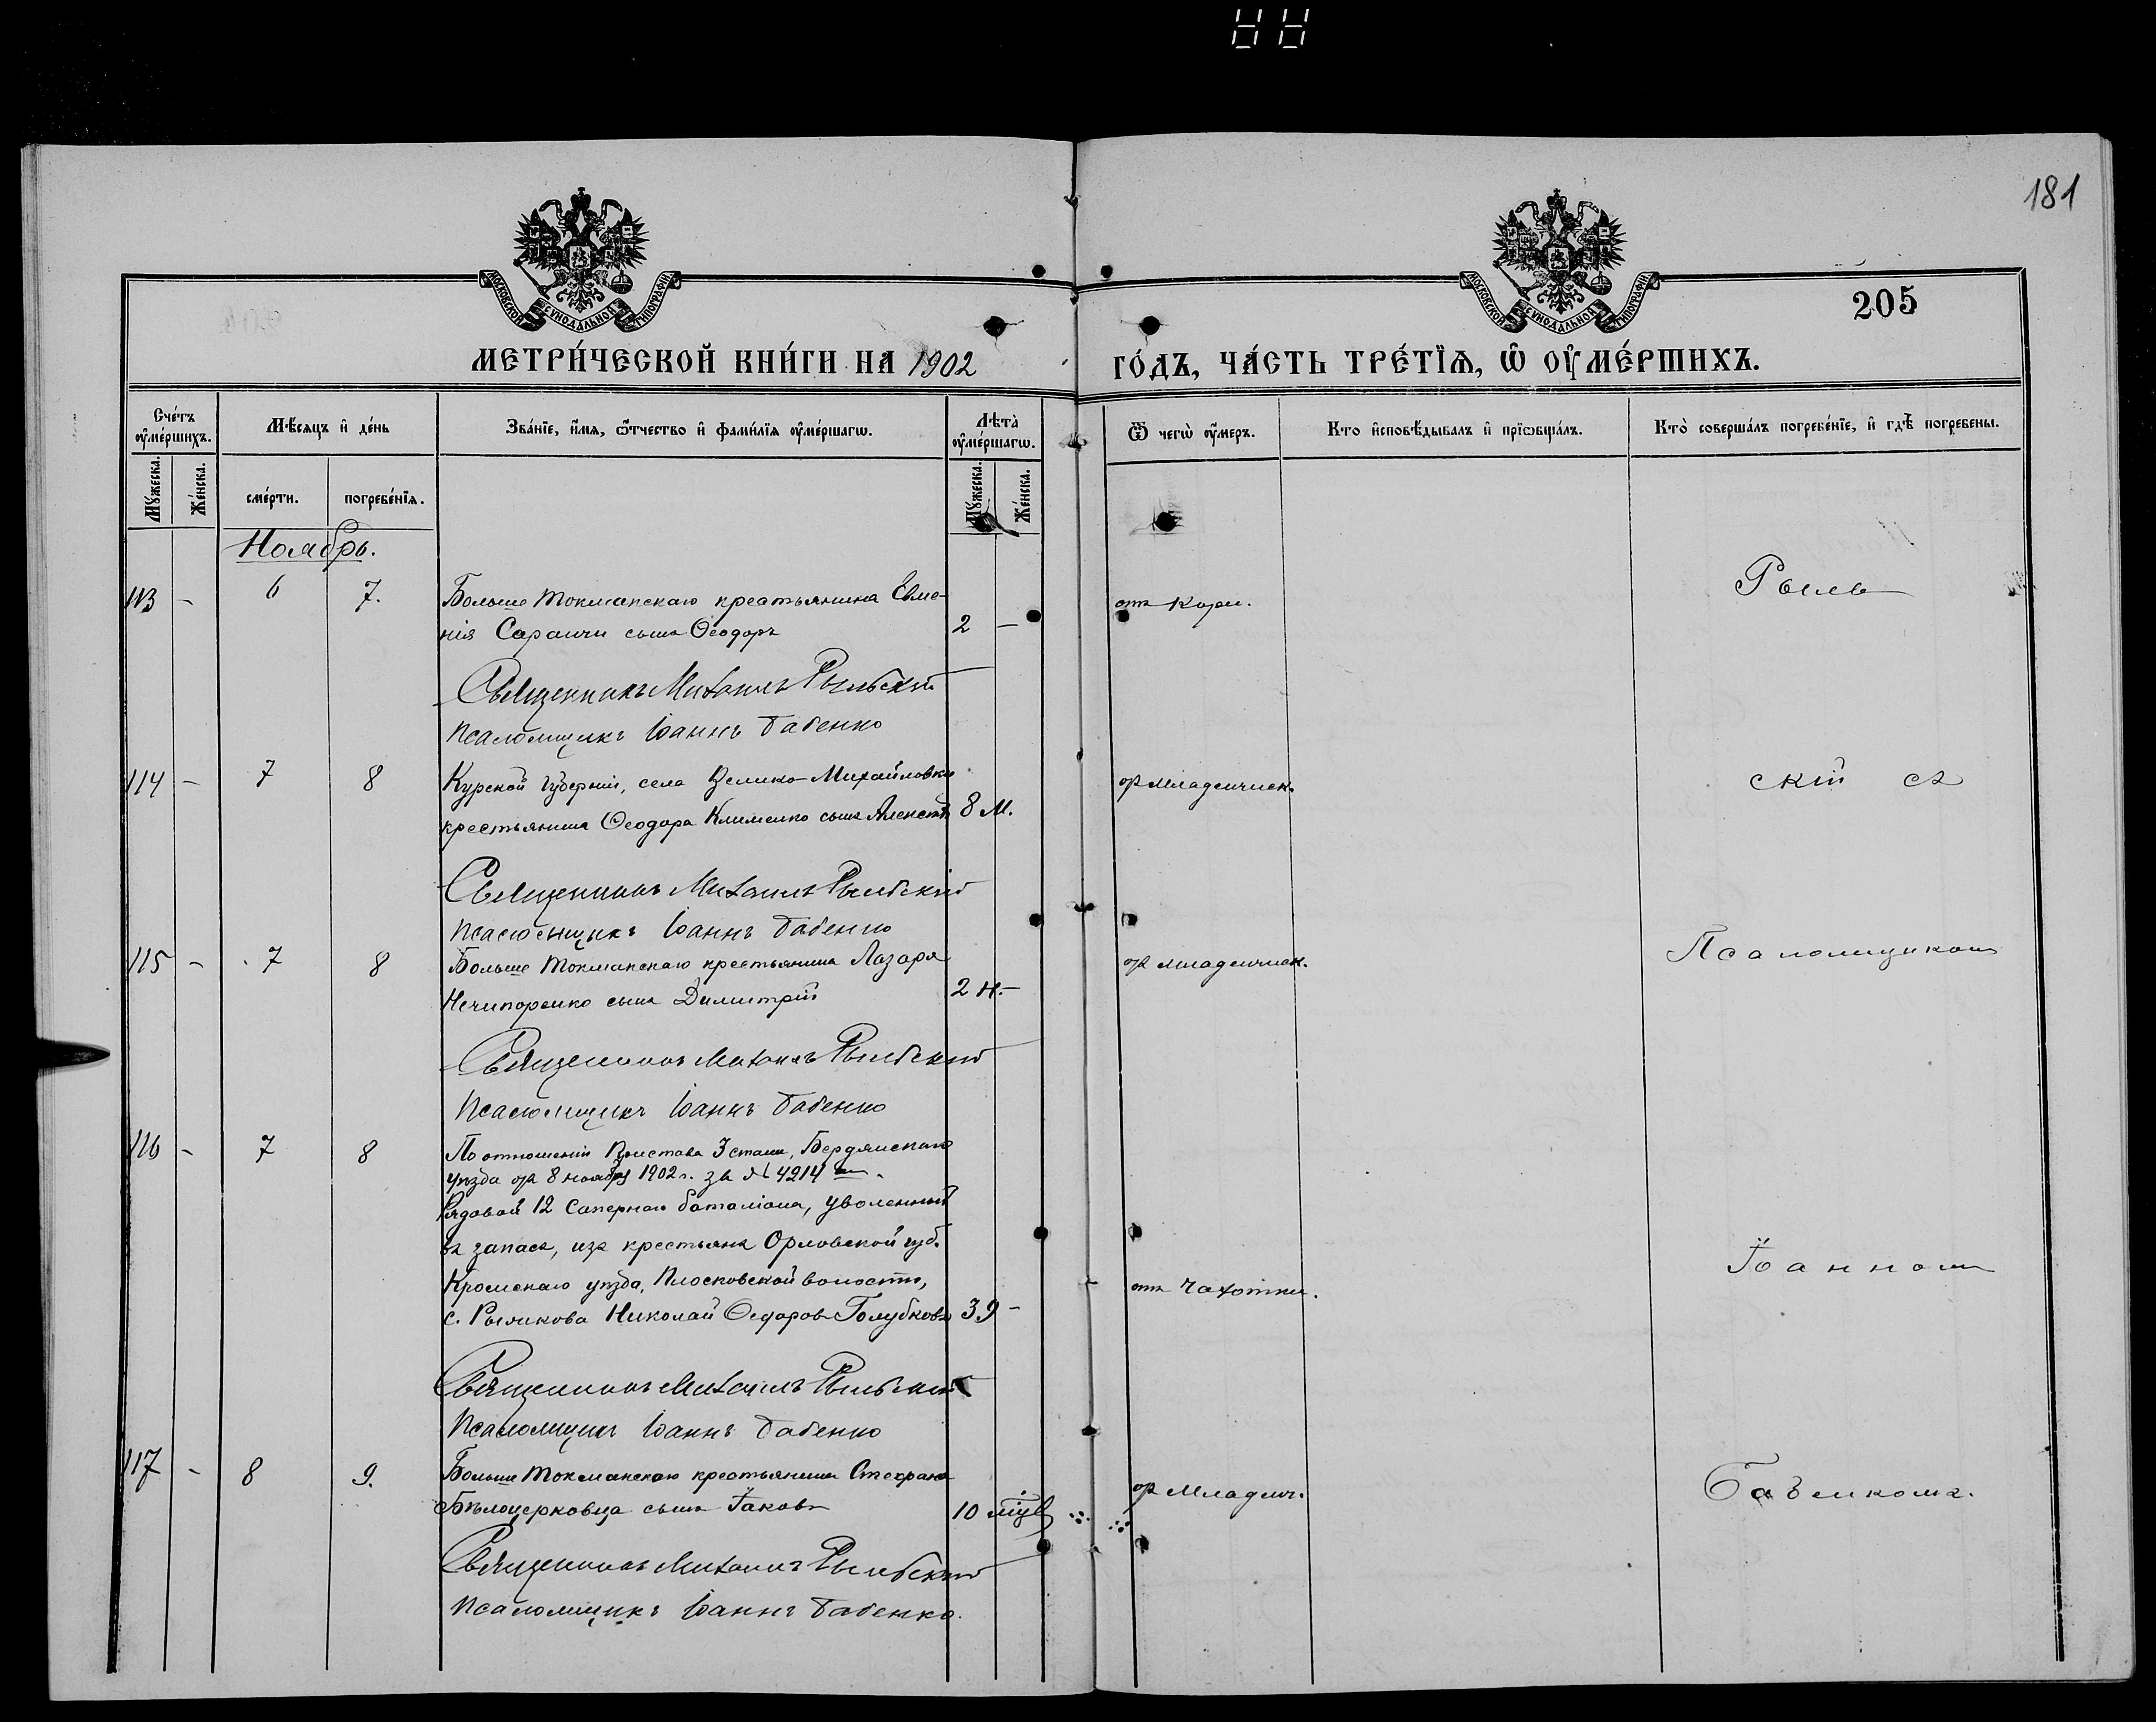 181
МОСКОВСКОЙ СѴНОДАЛЬНОЙ ТИПОГРАФІИ
МОСКОВСКОЙ СѴНОДАЛЬНОЙ ТИПОГРАФІИ
205
МЕТРИ́ЧЕСКОЙ КНИ́ГИ НА 1902 ГО́ДЪ, ЧА́СТЬ ТРЕ́ТЇѦ, Ѡ҆ ОУ҆МЕ́РШИХЪ.
Сче́тъ оу҆ме́ршихъ.
Мꙋ́жеска.
Же́нска.
Мѣ́сяцъ и҆ де́нь
сме́рти.
погребе́нїѧ.
Зва́нїе, и҆́мя, ѻ҆́тчество и҆ фами́лїя оу҆ме́ршагѡ.
Лѣта̀ оу҆ме́ршагѡ.
Мꙋ́жеска.
Же́нска.
Ѿ чегѡ̀ оу҆́меръ.
Кто и҆сповѣ́дывалъ и҆ прїѡбща́лъ.
Кто̀ соверша́лъ погребе́нїе, и҆ гдѣ̀ погребены.
Ноябрь.
113 - 6 7. Больше Токмакскаго крестьянина Евме-
нія Саранчи сынъ Ѳеодоръ 2 — отъ Кори. Рыль
Священникъ Михаилъ Рыльскій
Псаломщикъ Іоаннъ Бабенко
114 - 7 8 Курской губерніи, села Велико-Михайловки
крестьянина Ѳеодора Клименко сынъ Алексѣй 8 м. отъ младенческ. скій съ
Священникъ Михаилъ Рыльскій
Псаломщикъ Іоаннъ Бабенко
115 - 7 8 Больше Токмакскаго крестьянина Лазаря
Нечипоренко сынъ Димитрій 2 н. — отъ младенческ. Псаломщикомъ
Священникъ Михаилъ Рыльскій
Псаломщикъ Іоаннъ Бабенко
116 - 7 8 По отношенію Пристава 3 стана, Бердянскаго
уѣзда отъ 8 ноября 1902 г. за № 4214
Рядовой 12 Сапернаго баталіона, уволенный
въ запасъ, изъ крестьянъ Орловской губ.
Кромскаго уѣзда, Плосковской волости,
с. Николай Ѳедоровъ Голубковъ 39 - отъ Чахотки. Іоанномъ
Священникъ Михаилъ Рыльскій
Псаломщикъ Іоаннъ Бабенко
117 - 8 9. Больше Токмакскаго крестьянина Стефана
Бѣлоцерковца сынъ Іаковъ 10 мцъ отъ младенч. Бабенкомъ.
Священникъ Михаилъ Рыльскій
Псаломщикъ Іоаннъ Бабенко.